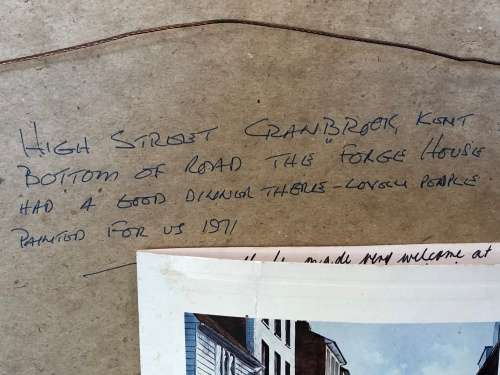 HIGH STREET CRANBROOK, KENT
BOTTOM OF ROAD THE "FORGE HOUSE
HAD A GOOD DINNER THERE - LOVELY PEOPLE
PAINTED FOR US 1971
made very welcome at